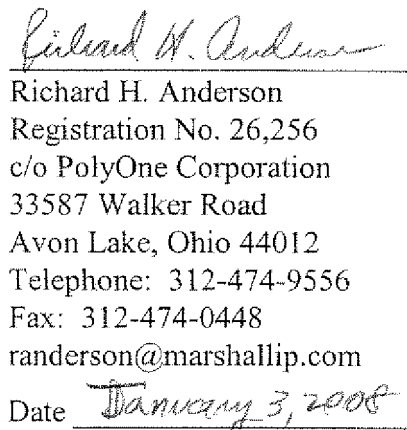 Richard H. Anderson
Richard H. Anderson
Registration No. 26,256
c/o PolyOne Corporation
33587 Walker Road
Avon Lake, Ohio 44012
Telephone: 312-474-9556
Fax: 312-474-0448
randerson@marshallip.com
Date January 3, 2008